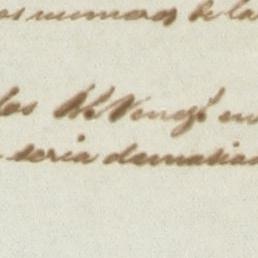 os numeros de la
los Rs. Venezs en
seria demasiad